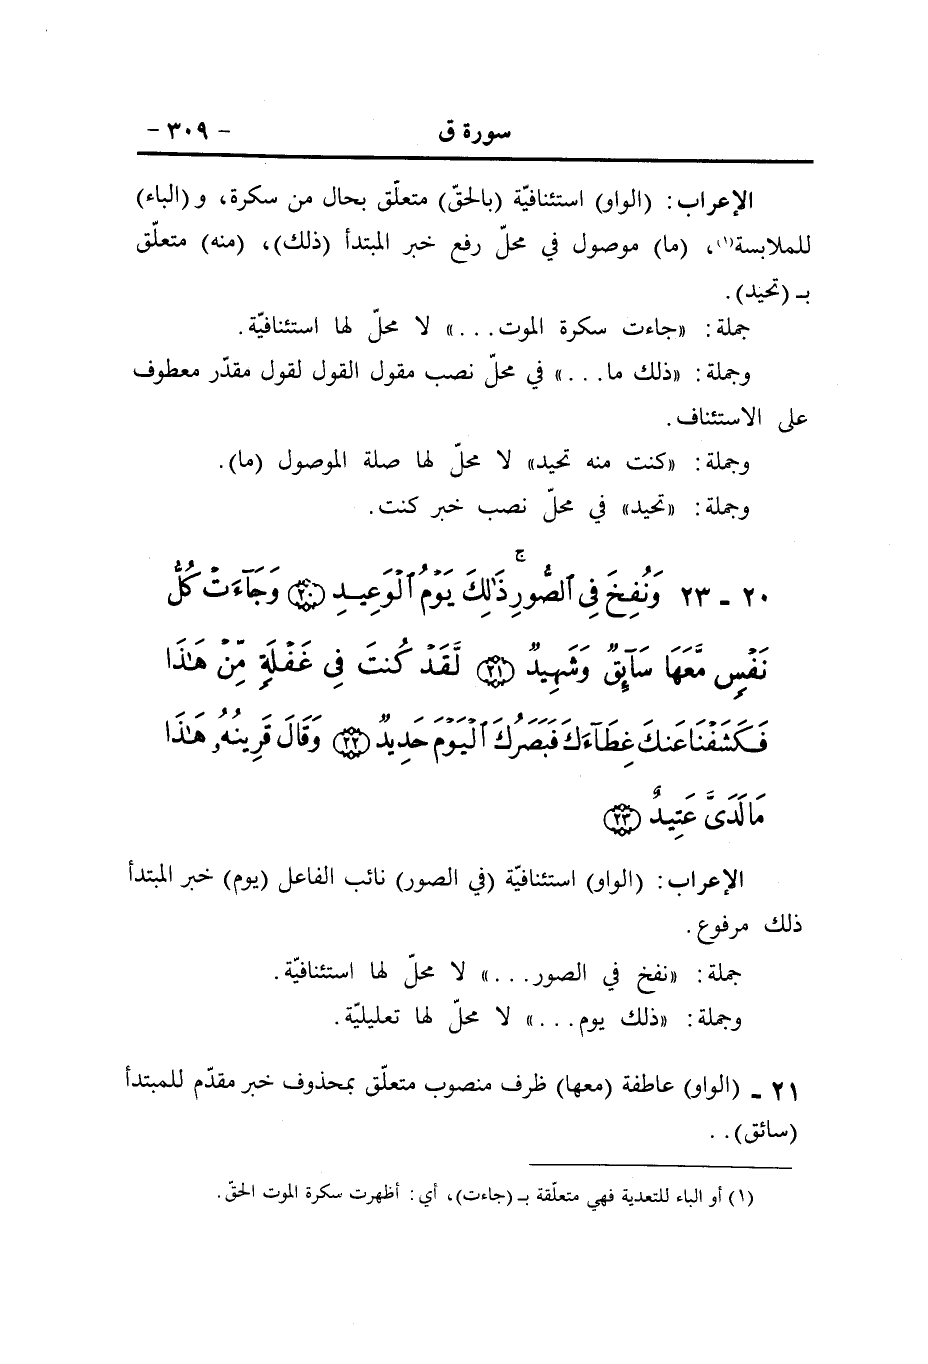 سورة ق - ٣٠٩ -
الإعراب: (الواو) استئنافيّة (بالحقّ) متعلّق بحال من سكرة، و (الباء)
للملابسة(١)، (ما) موصول في محلّ رفع خبر المبتدأ (ذلك)، (منه) متعلّق
بـ (تحيد).
جملة: «جاءت سكرة الموت...» لا محلّ لها استئنافيّة.
وجملة: «ذلك ما...» في محلّ نصب مقول القول لقول مقدّر معطوف
على الاستئناف.
وجملة: «كنت منه تحيد» لا محلّ لها صلة الموصول (ما).
وجملة: «تحيد» في محلّ نصب خبر كنت.
٢٠ - ٢٣ وَنُفِخَ فِي ٱلصُّورِ ۚ ذَٰلِكَ يَوْمُ ٱلْوَعِيدِ ﴿٢٠﴾ وَجَآءَتْ كُلُّ
نَفْسٍ مَّعَهَا سَآئِقٌ وَشَهِيدٌ ﴿٢١﴾ لَّقَدْ كُنتَ فِي غَفْلَةٍ مِّنْ هَٰذَا
فَكَشَفْنَا عَنكَ غِطَآءَكَ فَبَصَرُكَ ٱلْيَوْمَ حَدِيدٌ ﴿٢٢﴾ وَقَالَ قَرِينُهُۥ هَٰذَا
مَا لَدَىَّ عَتِيدٌ ﴿٢٣﴾
الإعراب: (الواو) استئنافيّة (في الصور) نائب الفاعل (يوم) خبر المبتدأ
ذلك مرفوع.
جملة: «نفخ في الصور...» لا محلّ لها استئنافيّة.
وجملة: «ذلك يوم...» لا محلّ لها تعليليّة.
٢١ - (الواو) عاطفة (معها) ظرف منصوب متعلّق بمحذوف خبر مقدّم للمبتدأ
(سائق)..
(١) أو الباء للتعدية فهي متعلّقة بـ (جاءت)، أي: أظهرت سكرة الموت الحقّ.